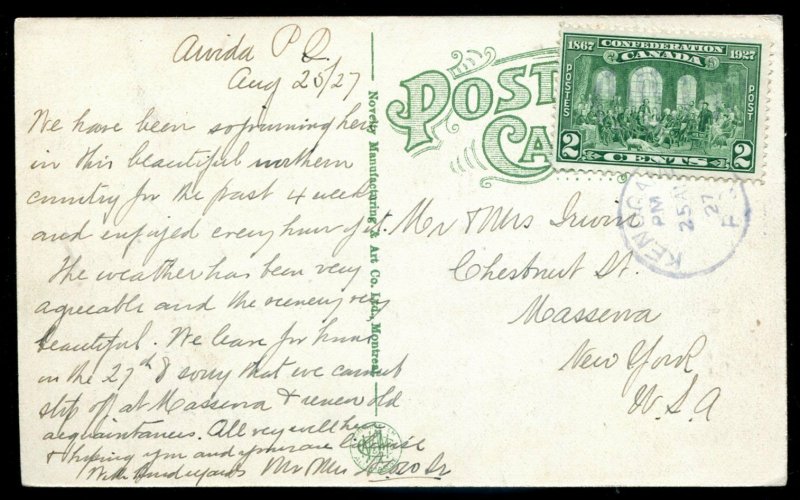 Arvida P Q.
Aug 25/27
We have been sojourning here
in this beautiful northern
country for the past 4 weeks
and enjoyed every hour of it.
The weather has been very
agreeable and the scenery very
beautiful. We leave for home
on the 27th & sorry that we cannot
stop off at Massena & renew old
acquaintances. All very well here
& hoping you and yours are likewise
With kind regards Mr Mrs Sr
Novelty Manufacturing & Art Co. Ltd., Montreal
POST
CA
1867 CONFEDERATION 1927
CANADA
POSTES
POST
2 CENTS 2
KENOGA
PM
25 AU
27
P
Mr & Mrs Irwin
Chestnut St.
Massena
New York
U.S.A